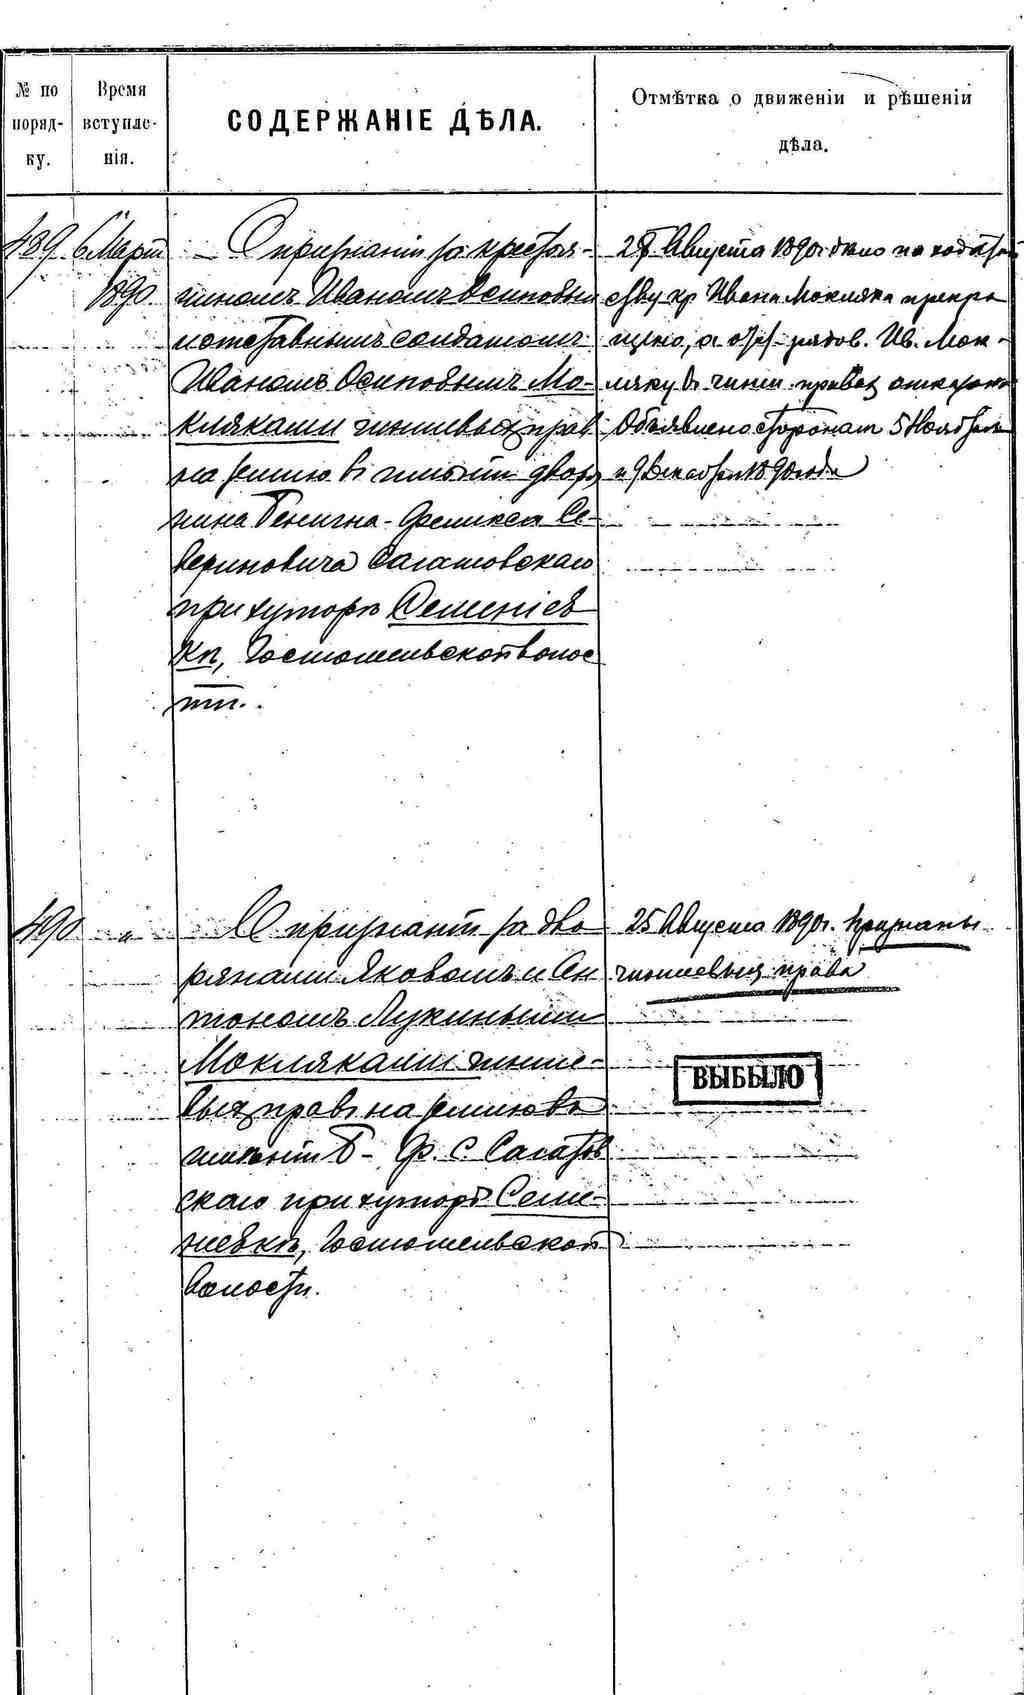 № по поряд- ку.
Время вступле- нія.
СОДЕРЖАНІЕ ДѢЛА.
Отмѣтка о движеніи и рѣшеніи дѣла.
489. 6 Марта 1890
О признаніи за крестья-
ниномъ Иваномъ Осиповым
и отставнымъ солдатомъ
Иваномъ Осиповымъ Мо-
кляками чиншевыхъ прав
на землю въ имѣніи дворя
нина Бенигна-Феликса Се-
вериновича Сагатовскаго
при хуторѣ Семеніев
кѣ, Гостомельской волос
ти.
25 Августа 1890 г. дѣло по ходатай
ству кр. Ивана Мокляка прекра
щено, а отст. рядов. Ив. Мок-
ляку въ чинш. правахъ отказано
Объявлено сторонам 5 Ноября
и 9 Декабря 1890 года
490 "
О признаніи за дво
рянами Яковомъ и Ан
тономъ Лукиными
Мокляками чинше-
выхъ правъ на землю въ
имѣніи Б-Ф. С. Сагатов
скаго при хуторѣ Семе-
ніевкѣ, Гостомельской
волости.
25 Августа 1890 г. Признаны
чиншевыя права
ВЫБЫЛО